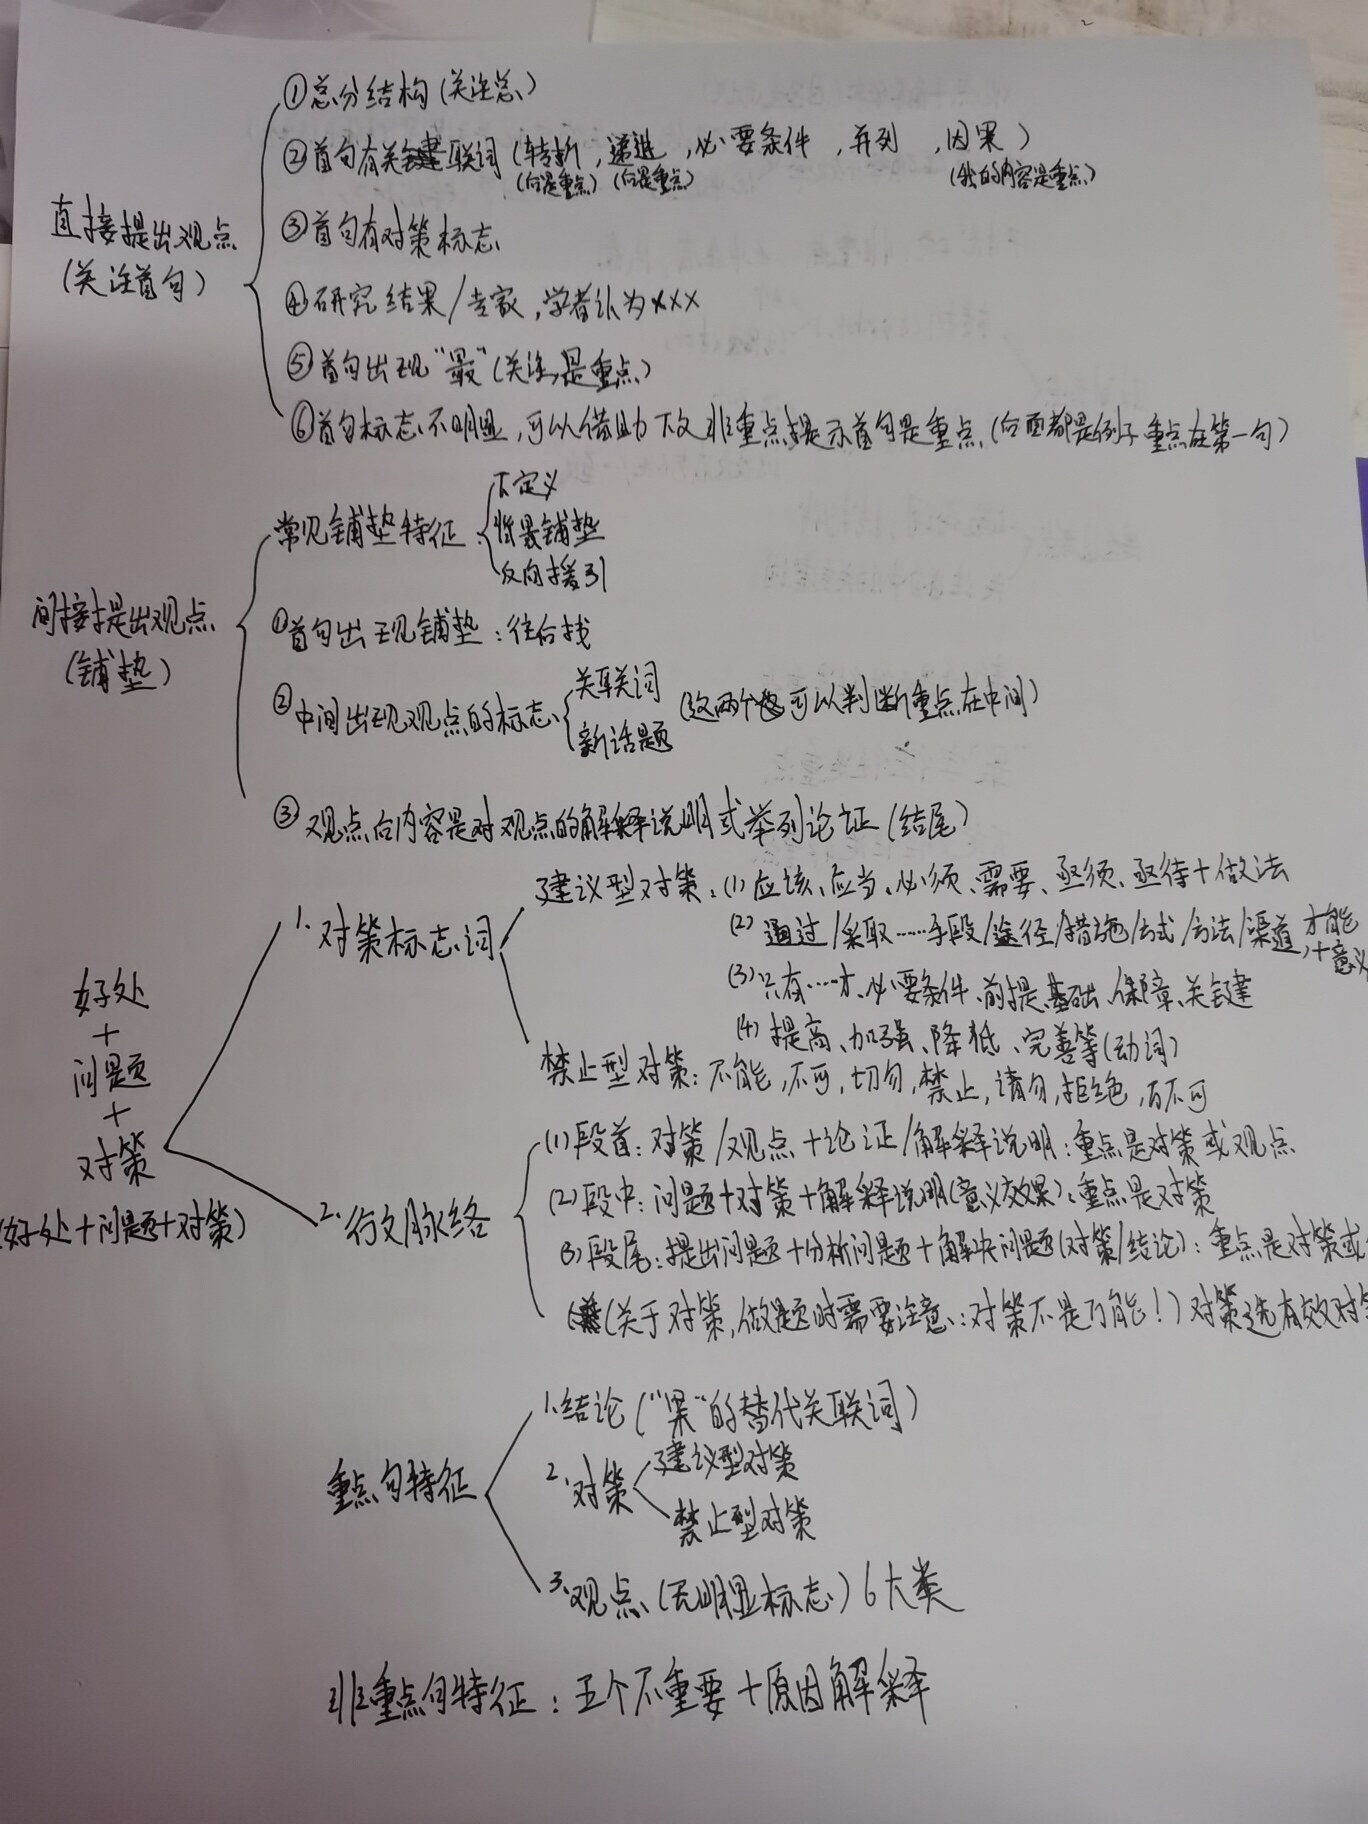 ①总分结构(关注总)
②首句有关键联词(转折,递进,必要条件,并列,因果)
(后是重点)(后是重点) (我的内容是重点)
直接提出观点
(关注首句)
③首句有对策标志
④研究结果/专家,学者认为×××
⑤首句出现"最"(关注,是重点)
⑥首句标志不明显,可以借助下文非重点提示首句是重点(后面都是例子重点在第一句)
常见铺垫特征
下定义
背景铺垫
反向援引
间接提出观点
(铺垫)
①首句出现铺垫:往后找
②中间出现观点的标志
关联词
新话题
(这两个也可以判断重点在中间)
③观点后内容是对观点的解释说明或举列论证(结尾)
好处
+
问题
+
对策
(好处+问题+对策)
1.对策标志词
建议型对策:(1)应该、应当、必须、需要、亟须、亟待+做法
(2)通过/采取……手段/途径/措施/方式/方法/渠道,才能+意义
(3)只有……才、必要条件、前提、基础、保障、关键
(4)提高、加强、降低、完善等(动词)
禁止型对策:不能,不可,切勿,禁止,请勿,拒绝,万不可
2.行文脉络
(1)段首:对策/观点+论证/解释说明:重点是对策或观点
(2)段中:问题+对策+解释说明(意义效果):重点是对策
(3)段尾:提出问题+分析问题+解决问题(对策/结论):重点是对策或
(关于对策,做题时需要注意:对策不是万能!)对策选有效对
重点句特征
1.结论("果"的替代关联词)
2.对策
建议型对策
禁止型对策
3.观点(无明显标志)6大类
非重点句特征:五个不重要+原因解释